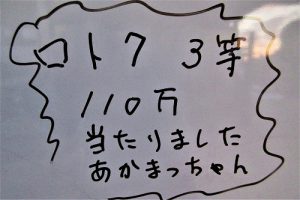 ロト7 3等
110万
当たりました
あかまっちゃん